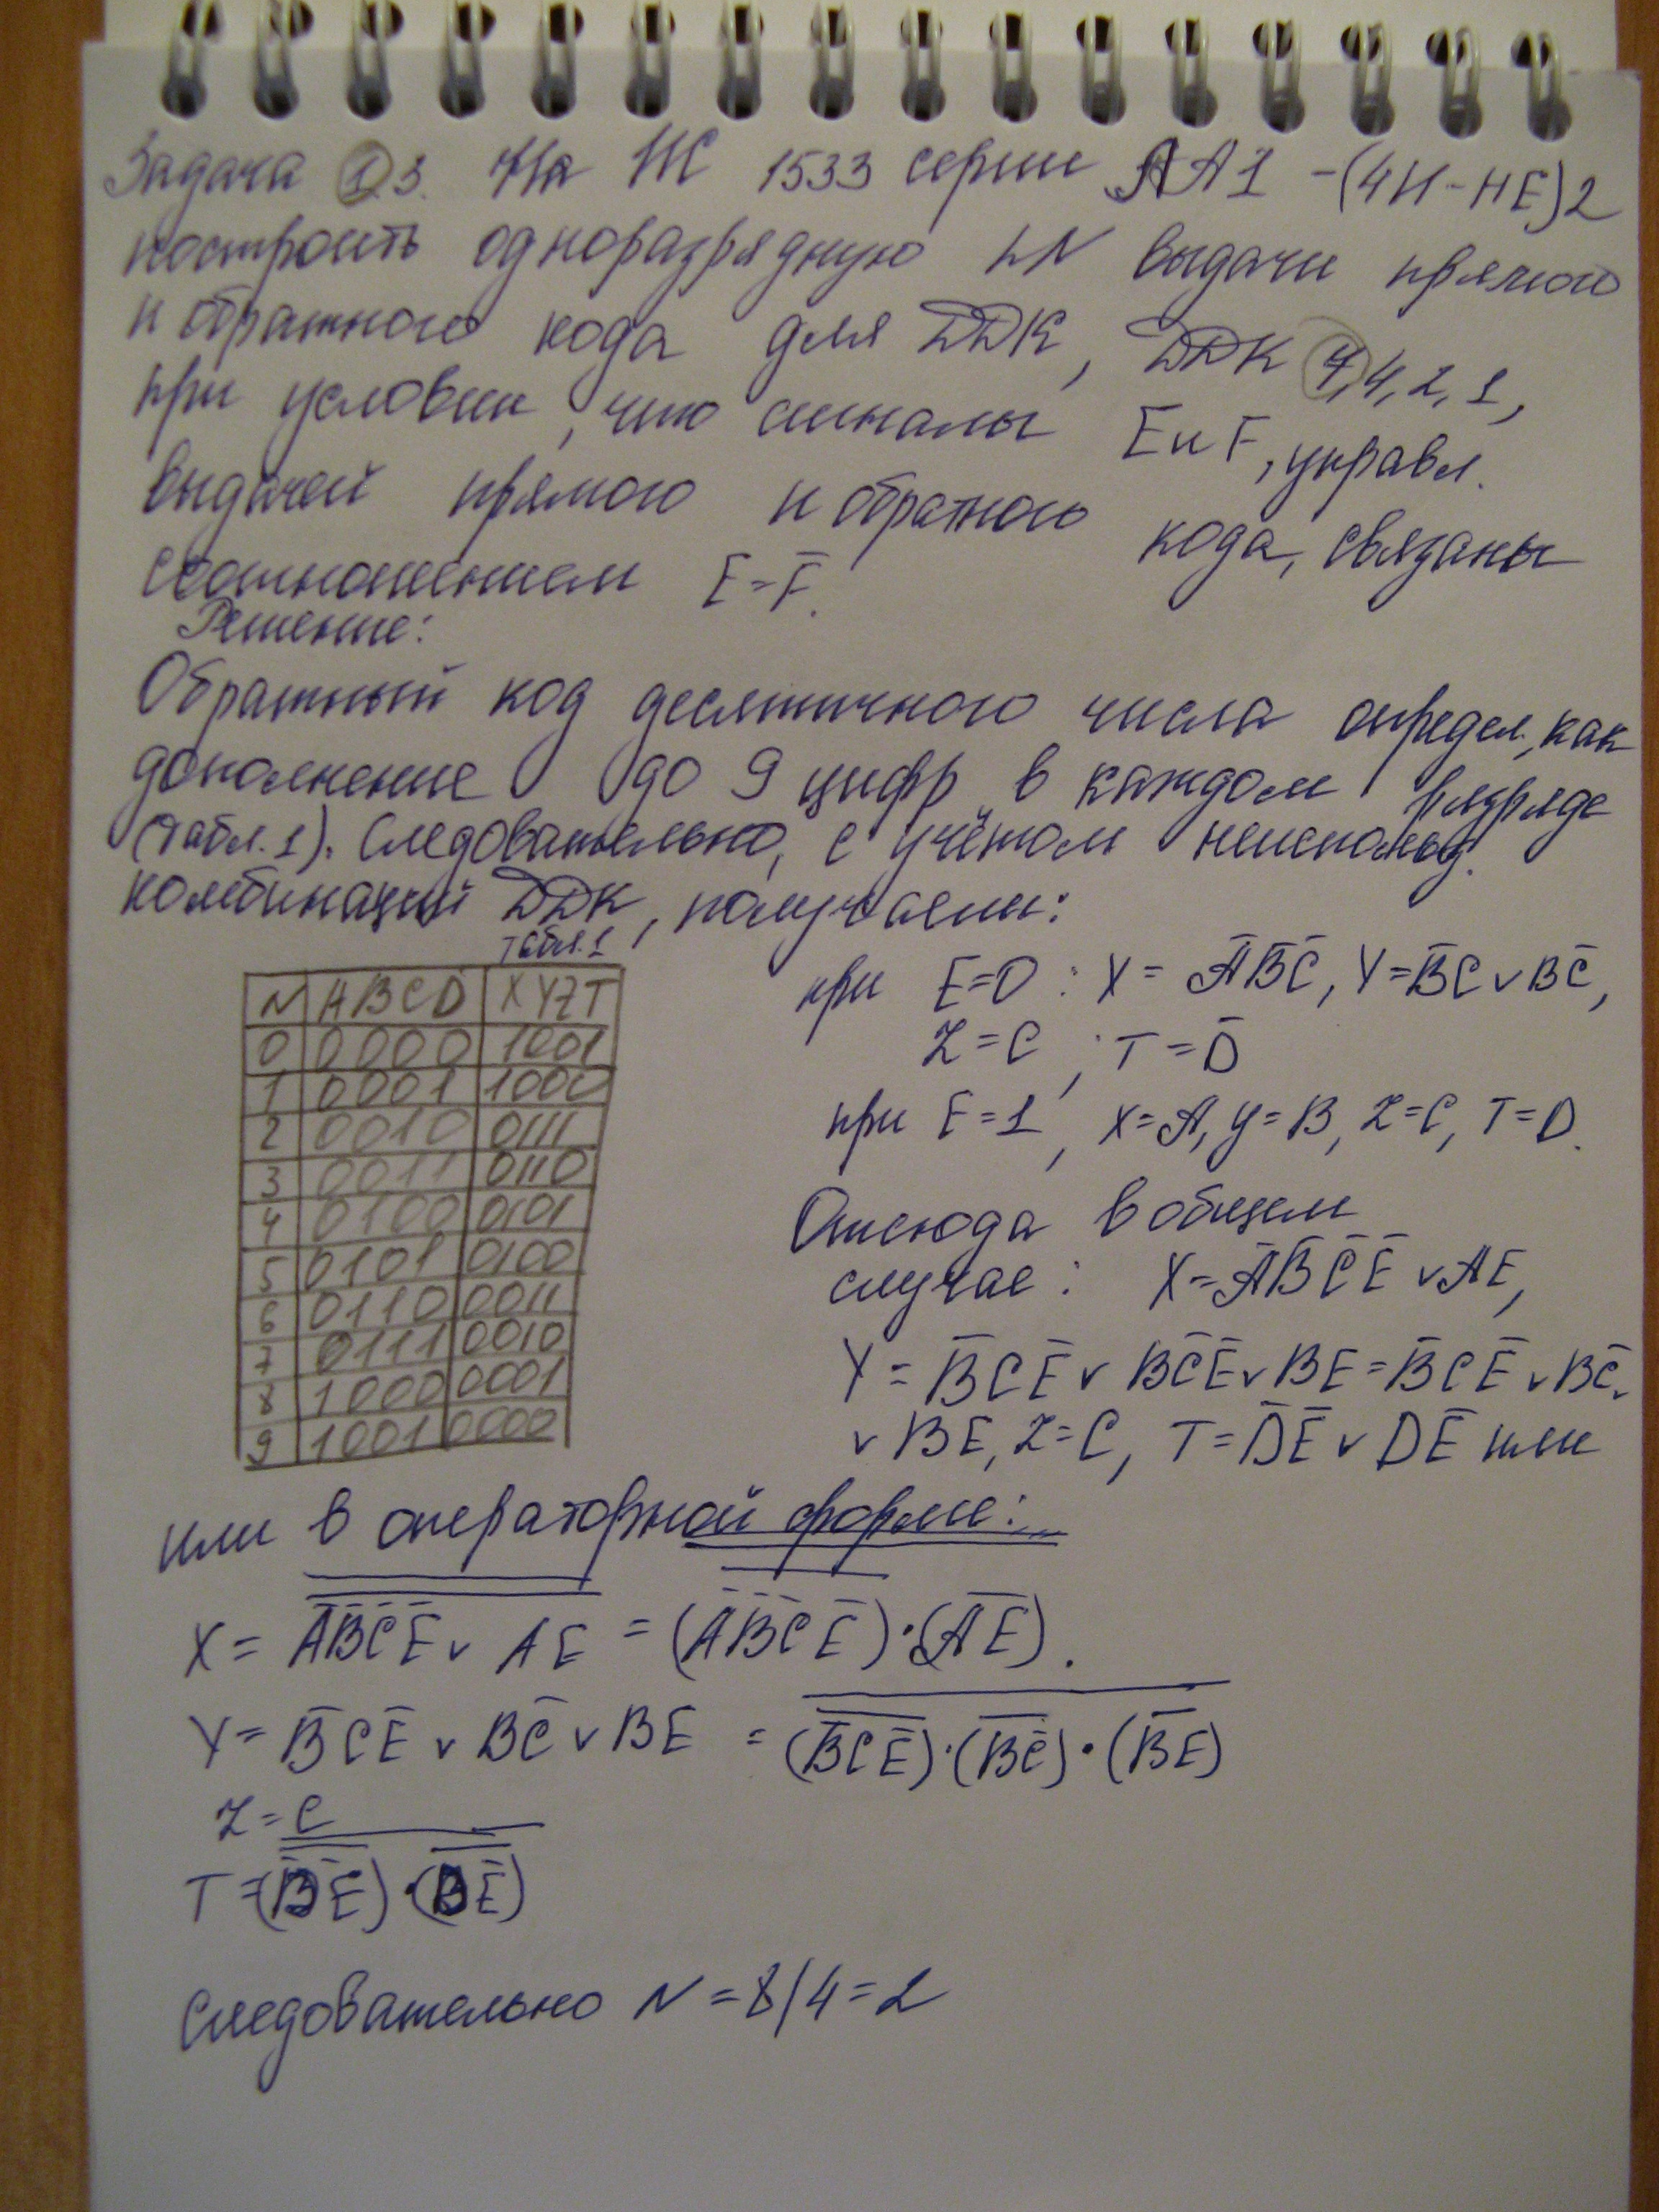 Задача 1.3. На ИС 1533 серии ЛА1 -(4И-НЕ)2
построить одноразрядную выдачи прямого
и обратного кода для ДДК, ДДК 7,4,2,1,
при условии, что сигналы E и F, управл.
выдачей прямого и обратного кода, связаны
соотношением E=F̅.
Решение:
Обратный код десятичного числа определ., как
дополнение до 9 цифр в каждом разряде
(табл.1). Следовательно, с учётом неиспольз.
комбинаций ДДК, получаем:
Табл.1
N ABCD XYZT
0 0000 1001
1 0001 1000
2 0010 0111
3 0011 0110
4 0100 0101
5 0101 0100
6 0110 0011
7 0111 0010
8 1000 0001
9 1001 0000
при E=0: X= A̅B̅C̅, Y=B̅C∨BC̅,
Z=C, T=D̅
при E=1, X=A, Y=B, Z=C, T=D.
Отсюда в общем
случае: X=A̅B̅C̅E̅ ∨AE,
Y=B̅CE̅∨BC̅E̅∨BE=B̅CE̅∨BC̅∨
∨BE, Z=C, T=D̅E̅∨DE̅ или
или в операторной форме:
X= A̅B̅C̅E̅ ∨ AE = (A̅B̅C̅E̅)·(AE).
Y= B̅CE̅ ∨ BC̅ ∨ BE = (B̅CE̅)·(BC̅)·(BE)
Z=C
T=(D̅E̅)·(DE̅)
Следовательно N=8/4=2